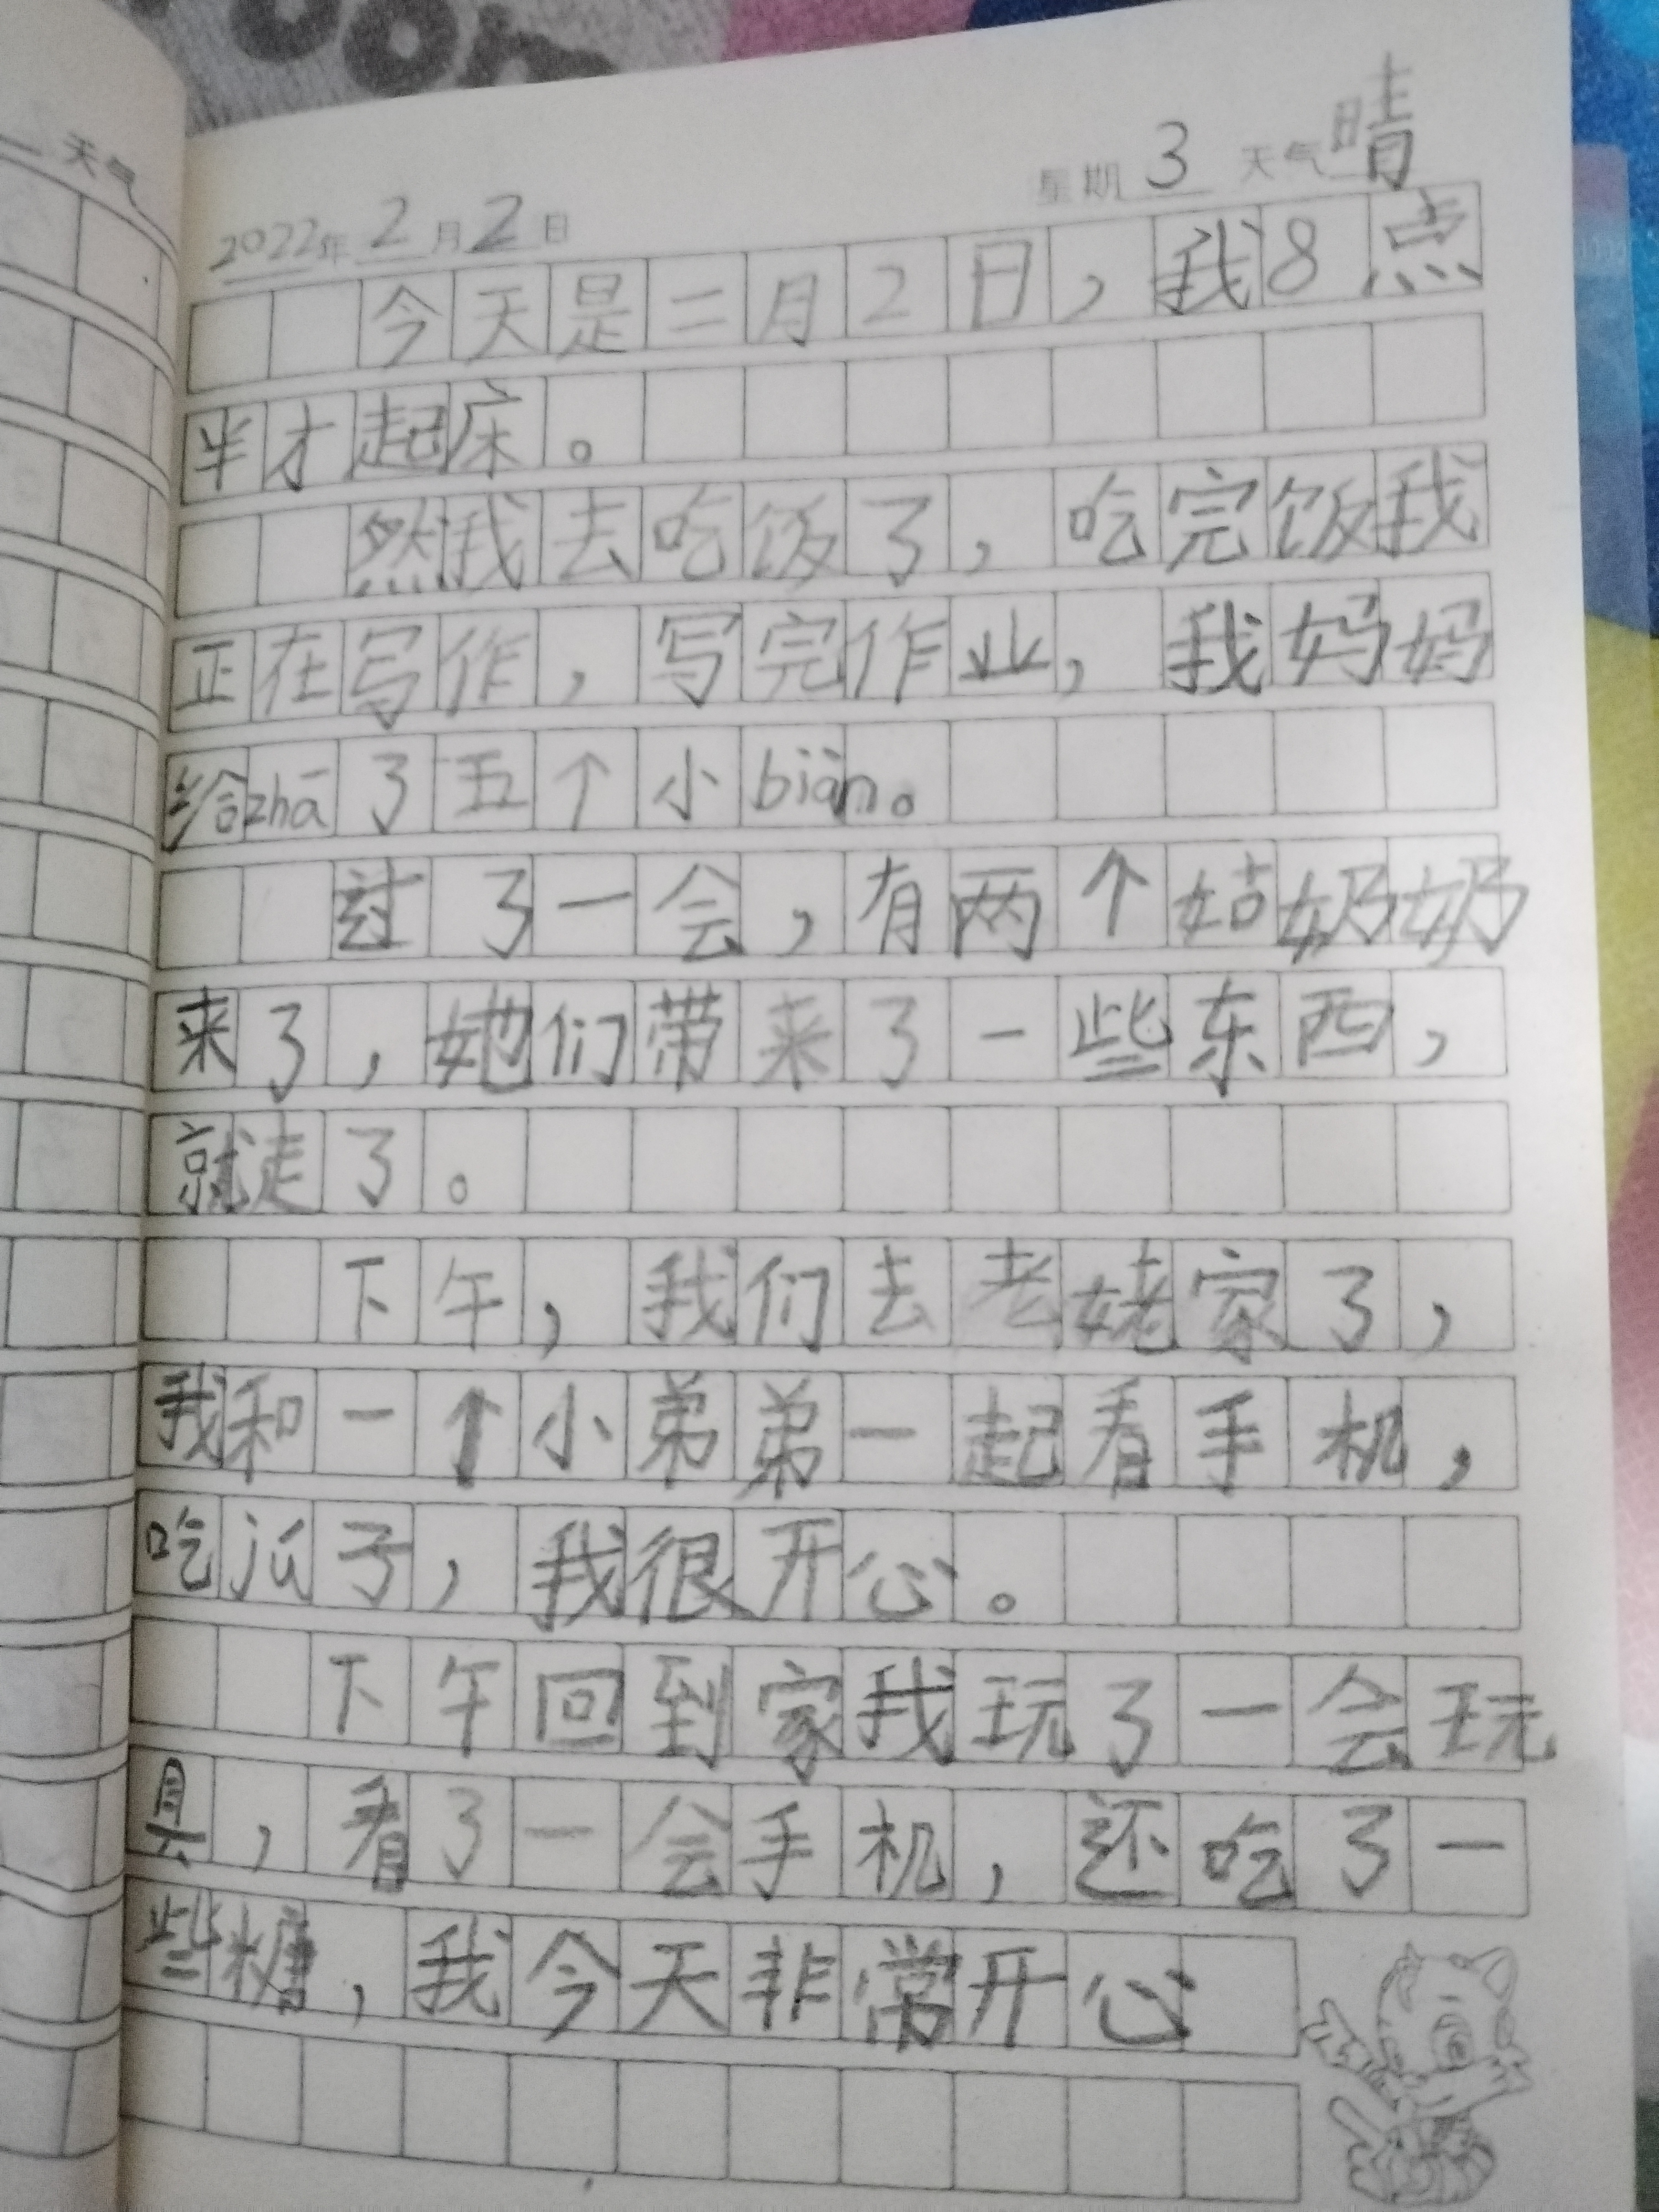 天气
2022年 2 月 2 日 星期 3 天气 晴
今天是二月2日，我8点
半才起床。
然我去吃饭了，吃完饭我
正在写作，写完作业，我妈妈
给zhā了五个小biàn。
过了一会，有两个姑奶奶
来了，她们带来了一些东西，
就走了。
下午，我们去老姥家了，
我和一个小弟弟一起看手机，
吃瓜子，我很开心。
下午回到家我玩了一会玩
具，看了一会手机，还吃了一
些糖，我今天非常开心